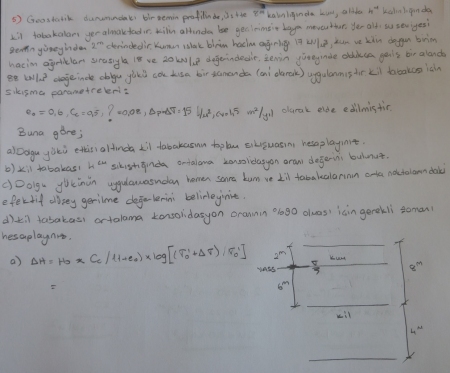 5) Geostatik durumundaki bir zemin profilinde, üstte 8m kalınlığında kum, altda 4m kalınlığında
kil tabakaları yer almaktadır. Kilin altında ise geçirimsiz kaya mevcuttur. Yer altı su seviyesi
zemin yüzeyinden 2m derindedir. Kumun ıslak birim hacim ağırlığı 17 kN/m³, kum ve kilin doygun birim
hacim ağırlıkları sırasıyla 18 ve 20 kN/m³ değerindedir. Zemin yüzeyinde oldukça geniş bir alanda
88 kN/m² değerinde dolgu yükü çok kısa bir zamanda (ani olarak) uygulanmıştır. Kil tabakası için
sıkışma parametreleri:
e₀ = 0,6, Cc = 0,5, ? = 0,08, Δp=Δσ=15 /m², Cv=1,5 m²/yıl olarak elde edilmiştir.
Buna göre;
a) Dolgu yükü etkisi altında kil tabakasının toplam sıkışmasını hesaplayınız.
b) Kil tabakası 4 cm sıkıştığında ortalama konsolidasyon oranı değerini bulunuz.
c) Dolgu yükünün uygulanmasından hemen sonra kum ve kil tabakalarının orta noktalarındaki
efektif düşey gerilme değerlerini belirleyiniz.
d) Kil tabakası ortalama konsolidasyon oranının %90 olması için gerekli zamanı
hesaplayınız.
a) ΔH = H₀ × Cc / (1+e₀) × log[(σ₀'+Δσ) / σ₀']
=
2m
YASS
6m
kum
kil
8m
4m